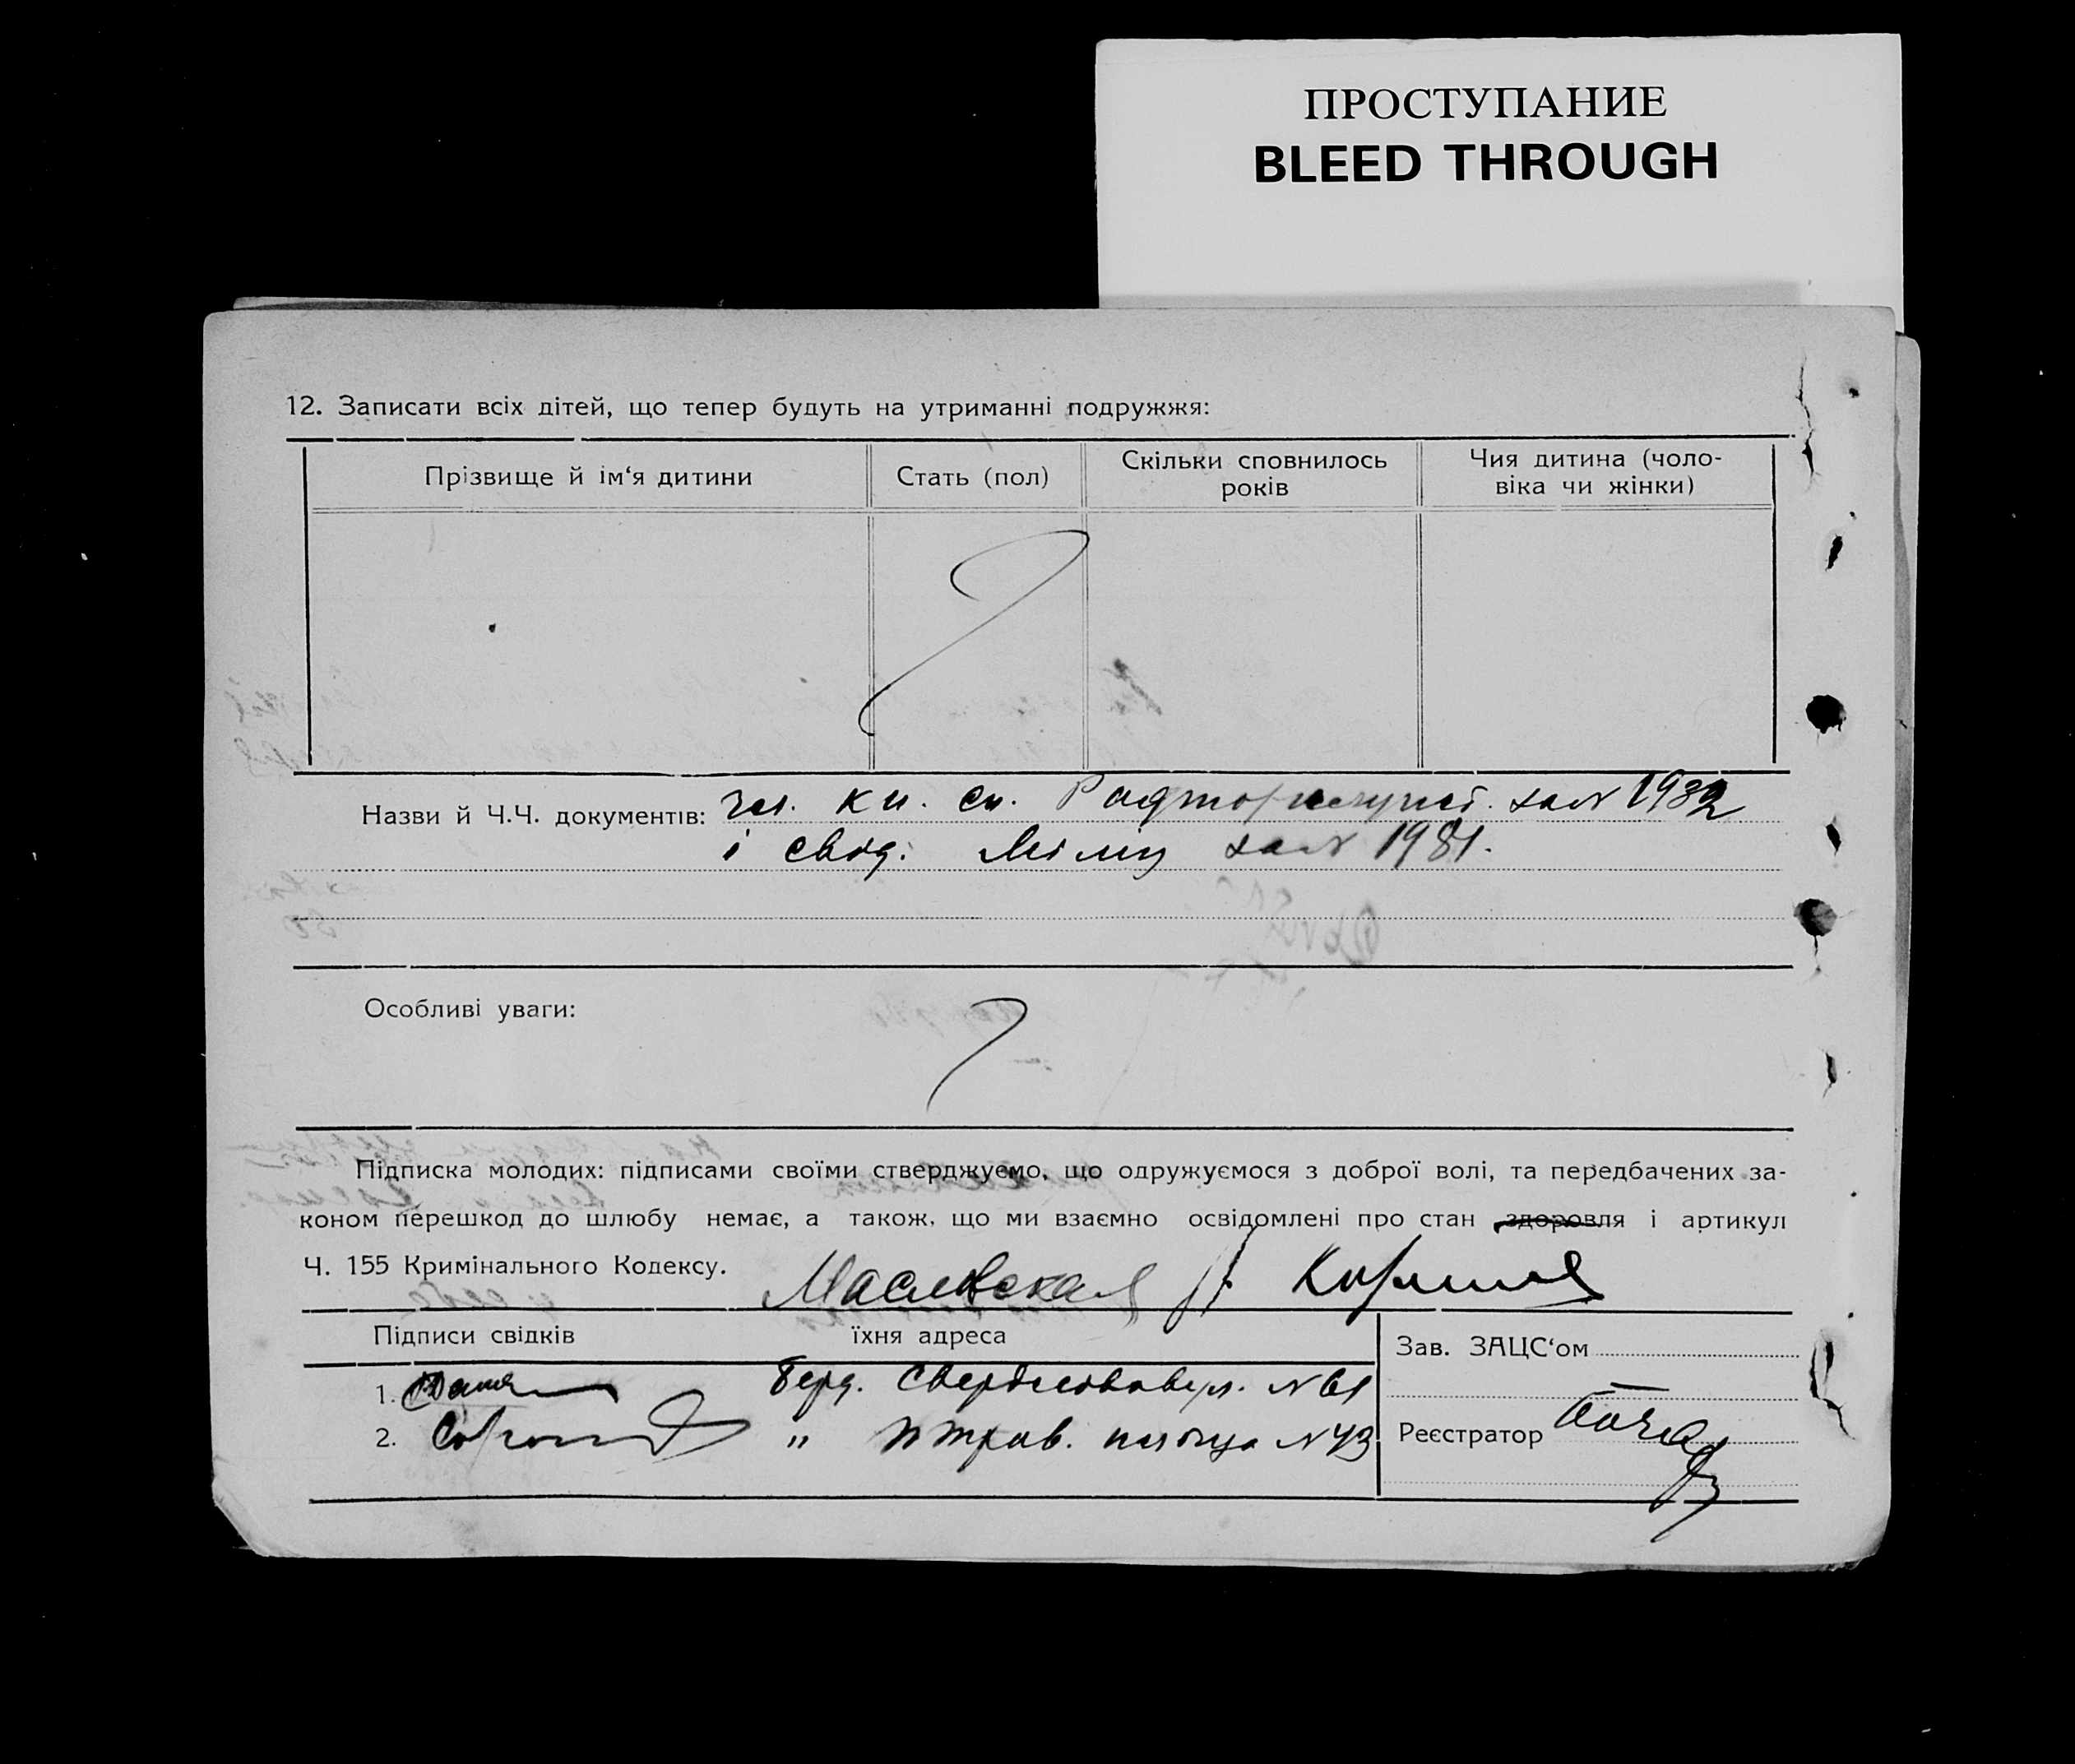 ПРОСТУПАНИЕ
BLEED THROUGH
12. Записати всіх дітей, що тепер будуть на утриманні подружжя:
Прізвище й ім‘я дитини
Стать (пол)
Скільки сповнилось
років
Чия дитина (чоло-
віка чи жінки)
Назви й Ч.Ч. документів: чл. кн. сп. 1932
і свід. 1981.
Особливі уваги:
Підписка молодих: підписами своїми стверджуємо, що одружуємося з доброї волі, та передбачених за-
коном перешкод до шлюбу немає, а також, що ми взаємно освідомлені про стан здоровля і артикул
Ч. 155 Кримінального Кодексу. Маслвская
Підписи свідків їхня адреса
Зав. ЗАЦС‘ом
1. Берд. N 61
2. " Nтрав. площа N 43
Реєстратор